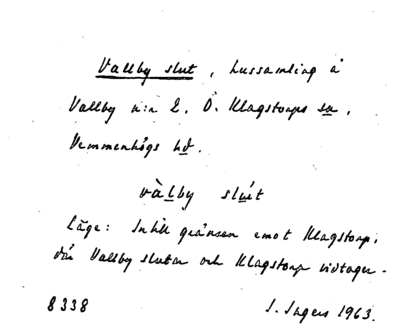 Vallby slut, hussamling å
Vallby n:r 2, Ö. Klagstorps sn,
Vemmenhögs hd.
vàlby slúit
Läge: Intill gränsen emot Klagstorp,
där Vallby slutar och Klagstorp vidtager.
8338 I. Ingers 1963.